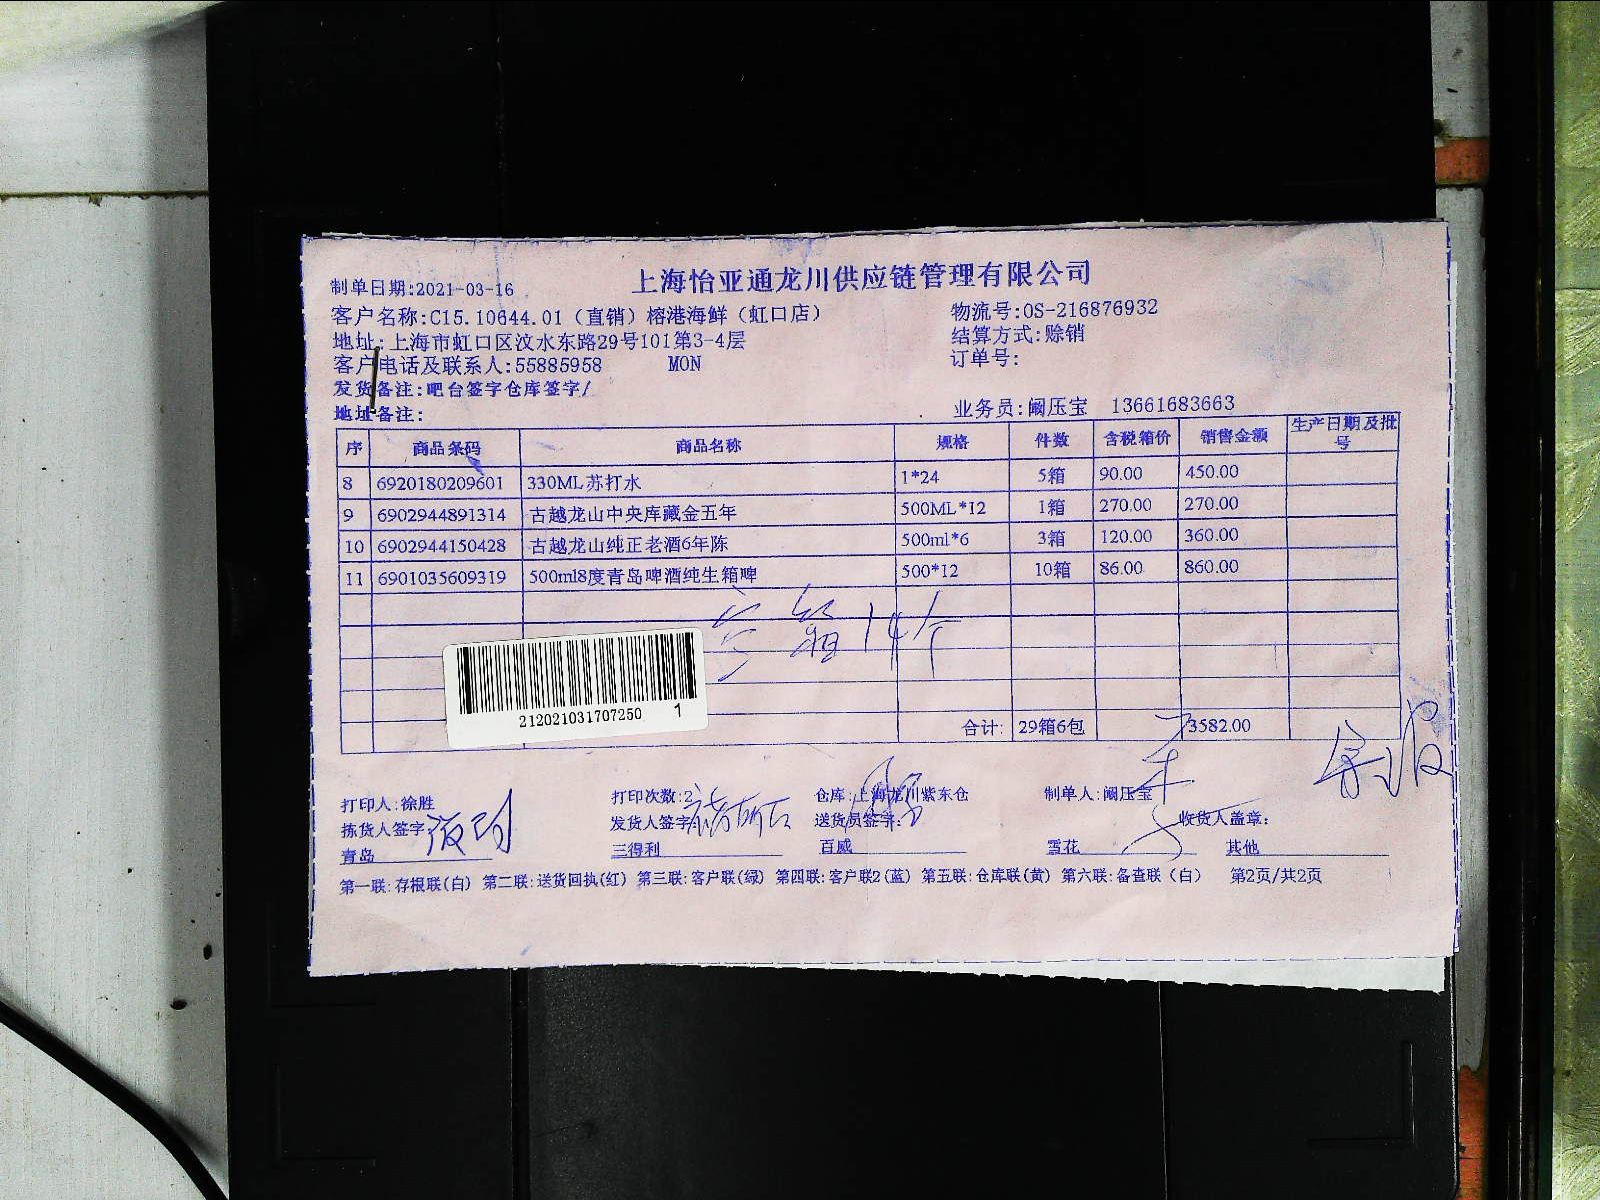 上海怡亚通龙川供应链管理有限公司
制单日期:2021-03-16
客户名称:C15.10644.01（直销）榕港海鲜（虹口店） 物流号:OS-216876932
地址:上海市虹口区汶水东路29号101第3-4层 结算方式:赊销
客户电话及联系人:55885958 MON 订单号:
发货备注:吧台签字仓库签字/
地址备注: 业务员:阚压宝 13661683663
序 商品条码 商品名称 规格 件数 含税箱价 销售金额 生产日期及批号
8 6920180209601 330ML苏打水 1*24 5箱 90.00 450.00
9 6902944891314 古越龙山中央库藏金五年 500ML*12 1箱 270.00 270.00
10 6902944150428 古越龙山纯正老酒6年陈 500ml*6 3箱 120.00 360.00
11 6901035609319 500ml8度青岛啤酒纯生箱啤 500*12 10箱 86.00 860.00
空箱14个
212021031707250 1
合计: 29箱6包 3582.00
打印人:徐胜 打印次数:2 仓库:上海龙川紫东仓 制单人:阚压宝
拣货人签字: 发货人签字: 送货员签字: 收货人盖章:
青岛 三得利 百威 雪花 其他
第一联:存根联(白) 第二联:送货回执(红) 第三联:客户联(绿) 第四联:客户联2(蓝) 第五联:仓库联(黄) 第六联:备查联（白） 第2页/共2页